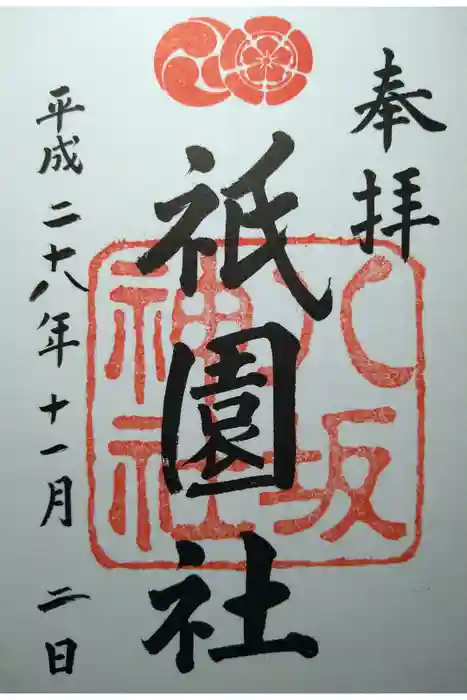 奉拝
八坂
神社
祇園社
平成二十八年十一月二日